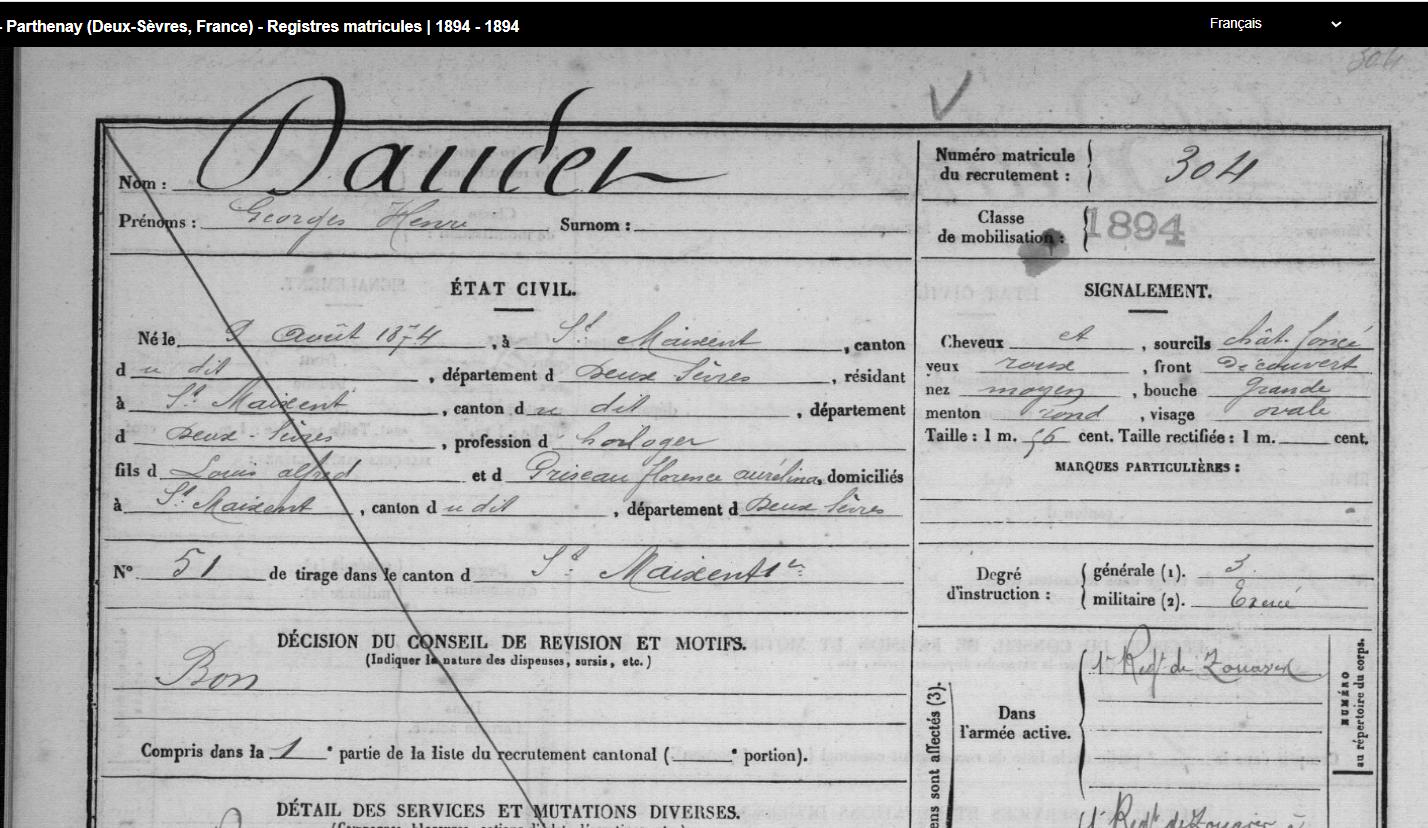 - Parthenay (Deux-Sèvres, France) - Registres matricules | 1894 - 1894
Français
304
Nom : Daudet
Prénoms : Georges Henri Surnom :
Numéro matricule du recrutement : 304
Classe de mobilisation : 1894
ÉTAT CIVIL.
Né le 9 août 1874, à St Maixent, canton
du dit, département d Deux Sèvres, résidant
à St Maixent, canton du dit, département
d Deux-Sèvres, profession d horloger
fils d Louis alfred et d Priseau florence aurélina, domiciliés
à St Maixent, canton du dit, département d Deux Sèvres
N° 51 de tirage dans le canton d St Maixent 1er
SIGNALEMENT.
Cheveux et, sourcils chât. foncé
yeux roux, front Découvert
nez moyen, bouche grande
menton rond, visage ovale
Taille : 1 m. 56 cent. Taille rectifiée : 1 m. cent.
MARQUES PARTICULIÈRES :
Degré d'instruction :
générale (1). 3
militaire (2). Exercé
DÉCISION DU CONSEIL DE REVISION ET MOTIFS.
(Indiquer la nature des dispenses, sursis, etc.)
Bon
Compris dans la 1e partie de la liste du recrutement cantonal ( e portion).
DÉTAIL DES SERVICES ET MUTATIONS DIVERSES.
ens sont affectés (3).
Dans l'armée active.
1er Regt de Zouaves
NUMÉRO au répertoire du corps.
1er Regt de Zouaves à